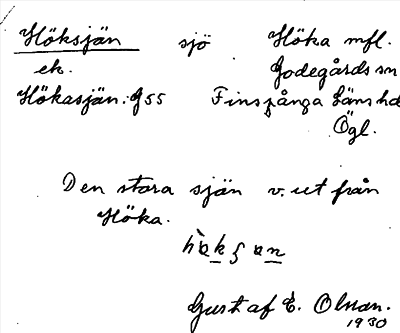 Höksjän sjö Höka mfl.
ek. Godegårds sn
Hökasjän: G55 Finspånga läns hd
Ögl.
Den stora sjön v. ut från
Höka.
Gustaf E. Olsson.
1930